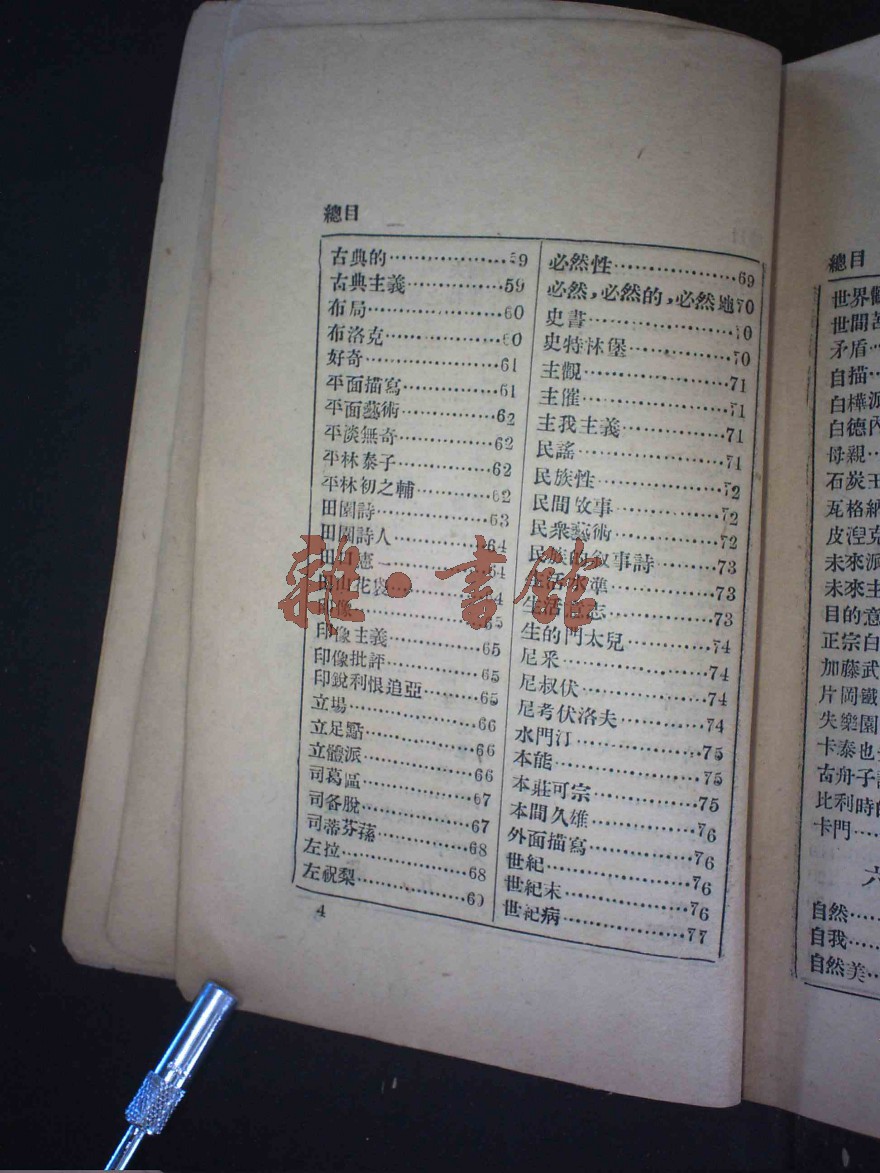 總目
古典的⋯⋯59
古典主義⋯⋯59
布局⋯⋯60
布洛克⋯⋯60
好奇⋯⋯61
平面描寫⋯⋯61
平面藝術⋯⋯62
平淡無奇⋯⋯62
平林泰子⋯⋯62
平林初之輔⋯⋯62
田園詩⋯⋯63
田園詩人⋯⋯64
田口憲⋯⋯64
田山花袋⋯⋯64
印像⋯⋯65
印像主義⋯⋯65
印像批評⋯⋯65
印銳利恨追亞⋯⋯65
立場⋯⋯66
立足點⋯⋯66
立體派⋯⋯66
司葛區⋯⋯67
司各脫⋯⋯67
司蒂芬蓀⋯⋯68
左拉⋯⋯68
左祝梨⋯⋯69
必然性⋯⋯69
必然,必然的,必然地70
史書⋯⋯70
史特林堡⋯⋯70
主觀⋯⋯71
主催⋯⋯71
主我主義⋯⋯71
民謠⋯⋯71
民族性⋯⋯72
民間故事⋯⋯72
民衆藝術⋯⋯72
民族的叙事詩⋯⋯73
生活水準⋯⋯73
生活意志⋯⋯73
生的門太兒⋯⋯74
尼采⋯⋯74
尼叔伏⋯⋯74
尼考伏洛夫⋯⋯74
水門汀⋯⋯75
本能⋯⋯75
本莊可宗⋯⋯75
本間久雄⋯⋯76
外面描寫⋯⋯76
世紀⋯⋯76
世紀末⋯⋯76
世紀病⋯⋯77
4
雜·書館
總目
世界觀
世間
矛盾⋯
自描⋯
白樺派
白德內
母親⋯
石炭王
瓦格納
皮涅克
未來派
未來主
目的意
正宗白
加藤武
片岡鐵
失樂園
卡泰也
古舟子
比利時的
卡門⋯⋯
六
自然⋯⋯
自我⋯⋯
自然美⋯